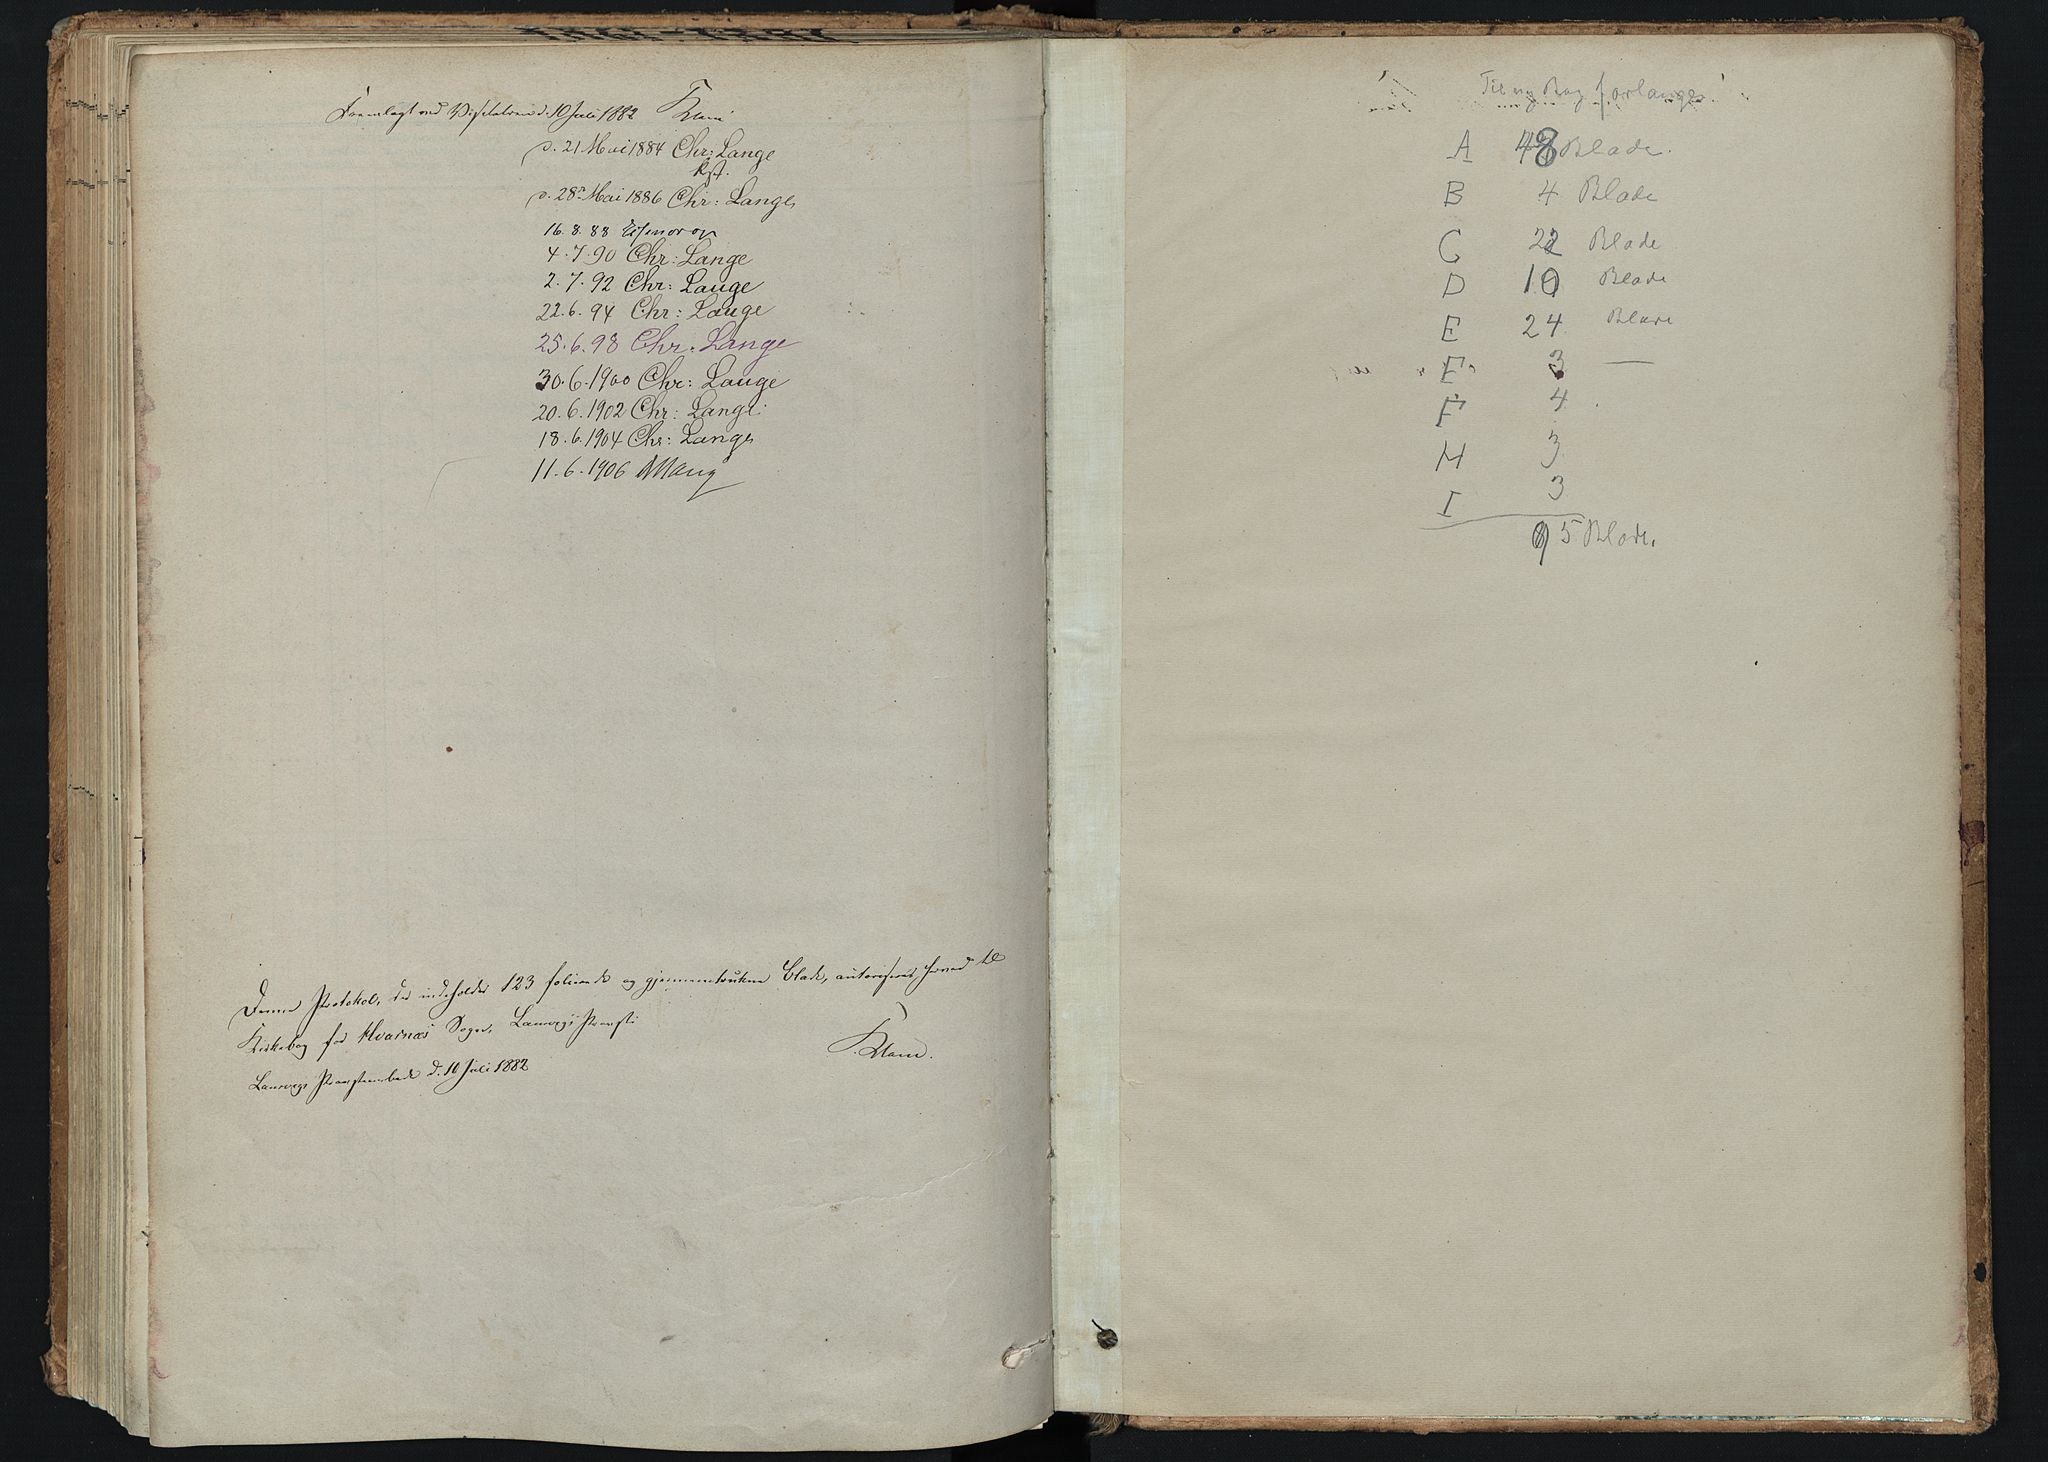 Fremlagt ved Visitatsen d. 10 Juli 1882
d. 21 Mai 1884 Chr: Lange
Kst.
d. 28n Mai 1886 Chr: Lange
16.8.88
4.7.90 Chr: Lange
2.7.92 Chr: Lange
22.6.94 Chr: Lange
25.6.98 Chr: Lange
30.6.1900 Chr: Lange
20.6.1902 Chr: Lange
18.6.1904 Chr: Lange
11.6.1906
Denne Protokol, der indeholder 123 folierede og gjennemtrukne Blade, autoriseres herved til
Kirkebog for Hvarnæs Sogn, Laurvigs Provsti
Laurvigs Provsteembede d. 10 Juli 1882
Til ny Bog forlanges
A 48 Blade.
B 4 Blade
C 22 Blade
D 10 Blade
E 24 Blade
F 3 —
F 4
H 3
I 3
95 Blade.